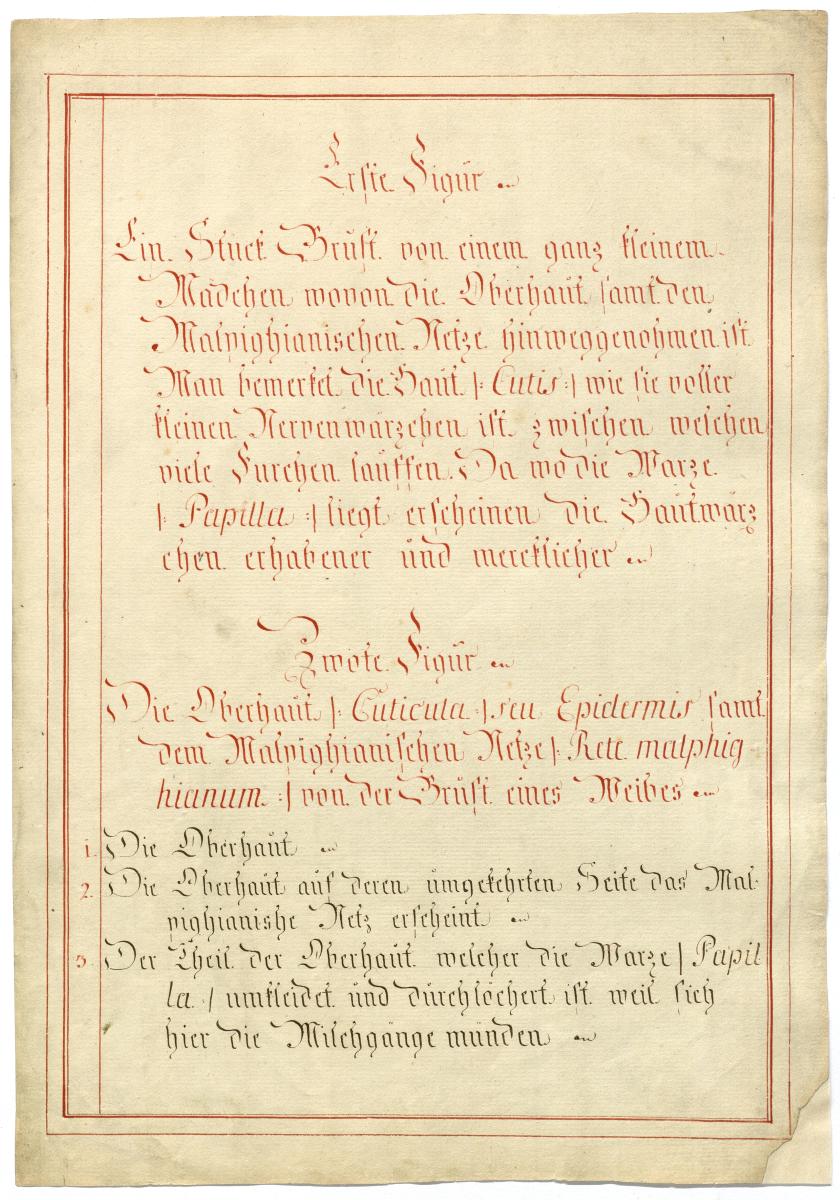 Erste Figur
Ein Stück Brust von einem ganz kleinem
Mädchen wovon die Oberhaut samt den
Malpighianischen Netze hinweggenohmen ist
Man bemerket die Haut |: Cutis :| wie sie voller
kleinen Nervenwärzchen ist zwischen welchen
viele Furchen lauffen. Da wo die Warze
|: Papilla :| liegt erscheinen die Hautwärz
chen erhabener und mercklicher
Zwote Figur
Die Oberhaut |: Cuticula :| seu Epidermis samt
dem Malpighianischen Netze |: Rete malphig
hianum :| von der Brust eines Weibes
1. Die Oberhaut
2. Die Oberhaut auf deren umgekehrten Seite das Mal-
pighianishe Netz erscheint
3. Der Theil der Oberhaut welcher die Warze | Papil
la :| umkleidet und durchlöchert ist weil sich
hier die Milchgänge münden